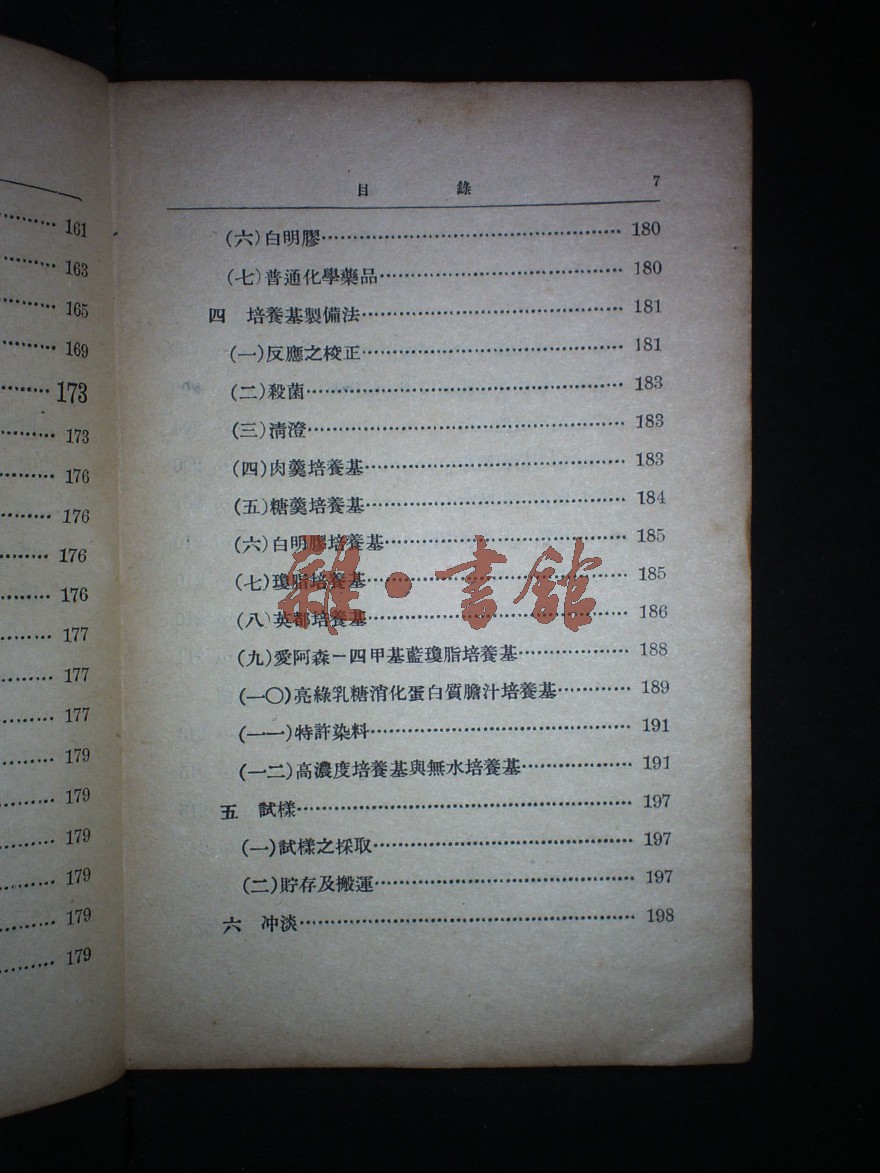 161
163
165
169
173
173
176
176
176
176
177
177
177
179
179
179
179
179
179
目 錄 7
(六)白明膠 180
(七)普通化學藥品 180
四 培養基製備法 181
(一)反應之校正 181
(二)殺菌 183
(三)清澄 183
(四)肉羹培養基 183
(五)糖羹培養基 184
(六)白明膠培養基 185
(七)瓊脂培養基 185
(八)英都培養基 186
(九)愛阿森－四甲基藍瓊脂培養基 188
(一〇)亮綠乳糖消化蛋白質膽汁培養基 189
(一一)特許染料 191
(一二)高濃度培養基與無水培養基 191
五 試樣 197
(一)試樣之採取 197
(二)貯存及搬運 197
六 冲淡 198
雜·書館